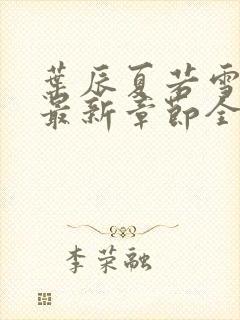 葉辰夏若雪
最新章節全
李荣融